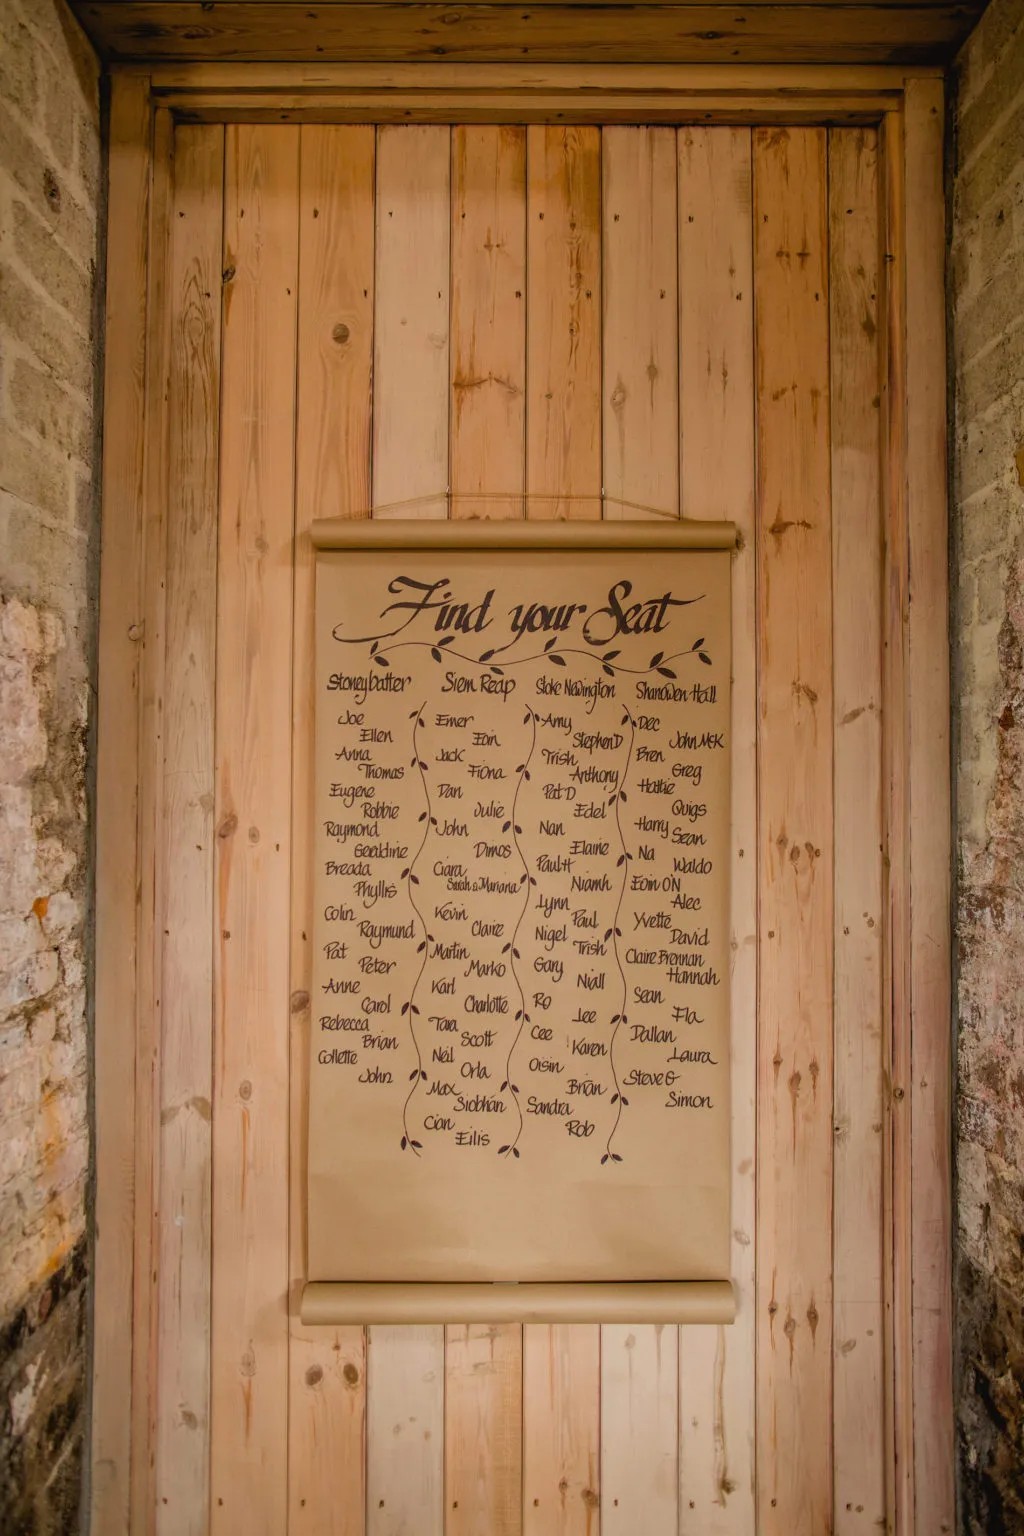 Find your Seat
Stoneybatter
Joe
Ellen
Anna
Thomas
Eugene
Robbie
Raymond
Geraldine
Breada
Phyllis
Colin
Raymund
Pat
Peter
Anne
Carol
Rebecca
Brian
Collette
John
Siem Reap
Emer
Eoin
Jack
Fiona
Dan
Julie
John
Dimos
Ciara
Sarah & Mariana
Kevin
Claire
Martin
Marko
Karl
Charlotte
Tara
Scott
Neil
Orla
Max
Siobhán
Cian
Eilis
Stoke Newington
Amy
Stephen D
Trish
Anthony
Pat D
Edel
Nan
Elaine
Paul H
Niamh
Lynn
Paul
Nigel
Trish
Gary
Niall
Ro
Lee
Cee
Karen
Oisin
Brian
Sandra
Rob
Shanowen Hall
Dec
John McK
Bren
Greg
Hattie
Quigs
Harry
Sean
Na
Waldo
Eoin ON
Alec
Yvette
David
Claire Brennan
Hannah
Sean
Fla
Dallan
Laura
Steve G
Simon